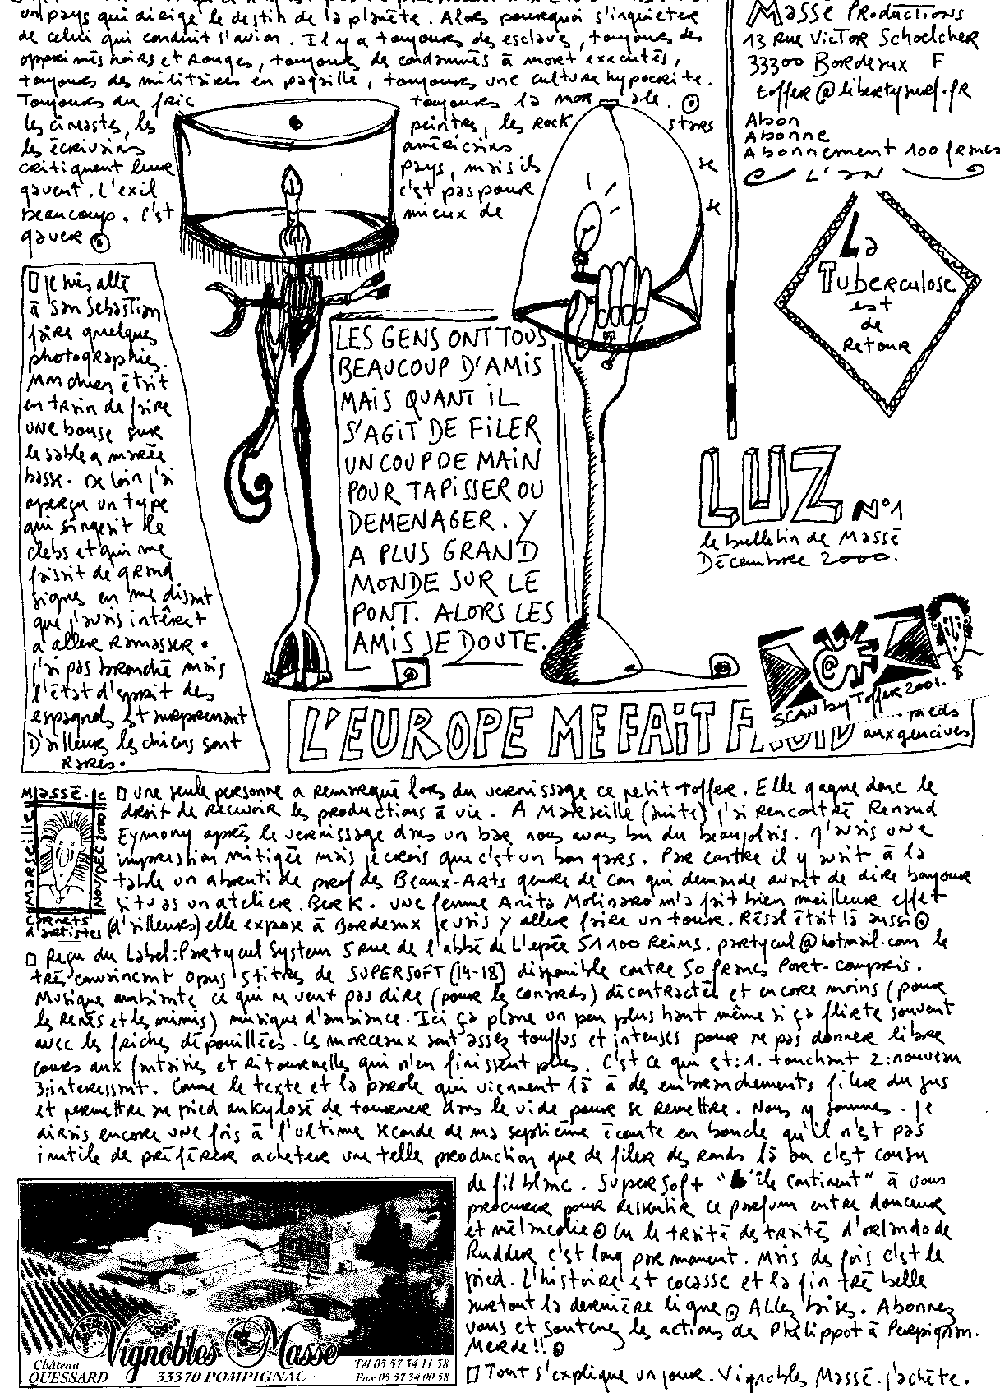 un pays qui dirige le destin de la planète. Alors pourquoi s'inquiéter
de celui qui conduit l'avion. Il y a toujours des esclaves, toujours des
opprimés noirs et rouges, toujours de condamnés à mort exécutés,
toujours des militaires en pagaille, toujours une culture hypocrite.
Toujours du fric toujours la morale.
les cinéastes, les peintres, les rock stars
les écrivains américains se
critiquent leur pays, mais ils se
gavent. L'exil c'est pas pour
beaucoup. C'est mieux de
gaver
Je suis allé
à San Sebastian
faire quelques
photographies.
Mon chien était
en train de faire
une bouse sur
le sable a marée
basse. De loin j'ai
aperçu un type
qui singeait le
clebs et qui me
faisait de grand
signes en me disant
que j'avais intérêt
a aller ramasser.
j'ai pas branché mais
l'état d'esprit des
espagnols est surprenant
D'ailleurs les chiens sont
rares.
LES GENS ONT TOUS
BEAUCOUP D'AMIS
MAIS QUANT iL
S'AGIT DE FILER
UN COUP DE MAIN
POUR TAPISSER OU
DEMENAGER. Y
A PLUS GRAND
MONDE SUR LE
PONT. ALORS LES
AMIS JE DOUTE.
Massé Productions
13 Rue Victor Schoelcher
33300 Bordeaux F
toffer@libertysurf.fr
Abon
Abonne
Abonnement 100 francs
L'AN
La
Tuberculose
est
de
Retour
LUZ N°1
le bulletin de Massé
Décembre 2000.
SCAN by Toffer 2001.
L'EUROPE ME FAIT FROID
pieds
aux gencives
MASSÉ.JC
MARSEILLE
NOV/DEC 2000
CARNETS
d'artistes
Une seule personne a remarqué lors du vernissage ce petit toffer. Elle gagne donc le
droit de recevoir les productions à vie. A Marseille (suite) j'ai rencontré Renaud
Eymony après le vernissage dans un bar nous avons bu du beaujolais. J'avais une
impression mitigée mais je crois que c'est un bon gars. Par contre il y avait à la
table un abruti de prof des Beaux-Arts genre de con qui demande avant de dire bonjour
si tu as un atelier. Berk. Une femme Anita Molinaro m'a fait bien meilleure effet
(d'ailleurs) elle expose à Bordeaux je vais y aller faire un tour. Résal était là aussi
Reçu du Label: Partycul System 5 rue de l'abbé de L'epée 51100 Reims. partycul@hotmail.com le
très convaincant opus 5 titres de SUPERSOFT (14-18) disponible contre 50 francs Port-compris.
Musique ambiante ce qui ne veut pas dire (pour les conards) décontractée et encore moins (pour
les renés et les mimis) musique d'ambiance. Ici ça plane un peu plus haut même si ça flirte souvent
avec les friches dépouillées. Les morceaux sont assez touffus et intenses pour ne pas donner libre
cours aux fantaisies et ritournelles qui n'en finissent plus. C'est ce qui est: 1. touchant 2: nouveau
3: interessant. Comme le texte et la parole qui viennent là à des embranchements filer du jus
et permettre au pied ankylosé de tourner dans le vide pour se remettre. Nous y sommes. Je
dirais encore une fois à l'ultime seconde de ma septième écoute en boucle qu'il n'est pas
inutile de préférer acheter une telle production que de filer des ronds là ou c'est cousu
de fil blanc. Supersoft "L'île continent" à vous
procurer pour ressentir ce parfum entre douceur
et mélancolie Lu le traité des traités d'orlando de
Rudder, c'est long par moment. Mais des fois c'est le
pied. L'histoire est cocasse et la fin très belle
surtout la dernière ligne Alles bises. Abonnez
vous et soutenez les actions de Philippot à Perpignan.
Merde!!
Tout s'explique un jour. Vignobles Massé. J'achète.
Vignobles Masse
Château
QUESSARD
33370 POMPIGNAC
Tél 05 57 34 11 58
Fax 05 57 34 00 58